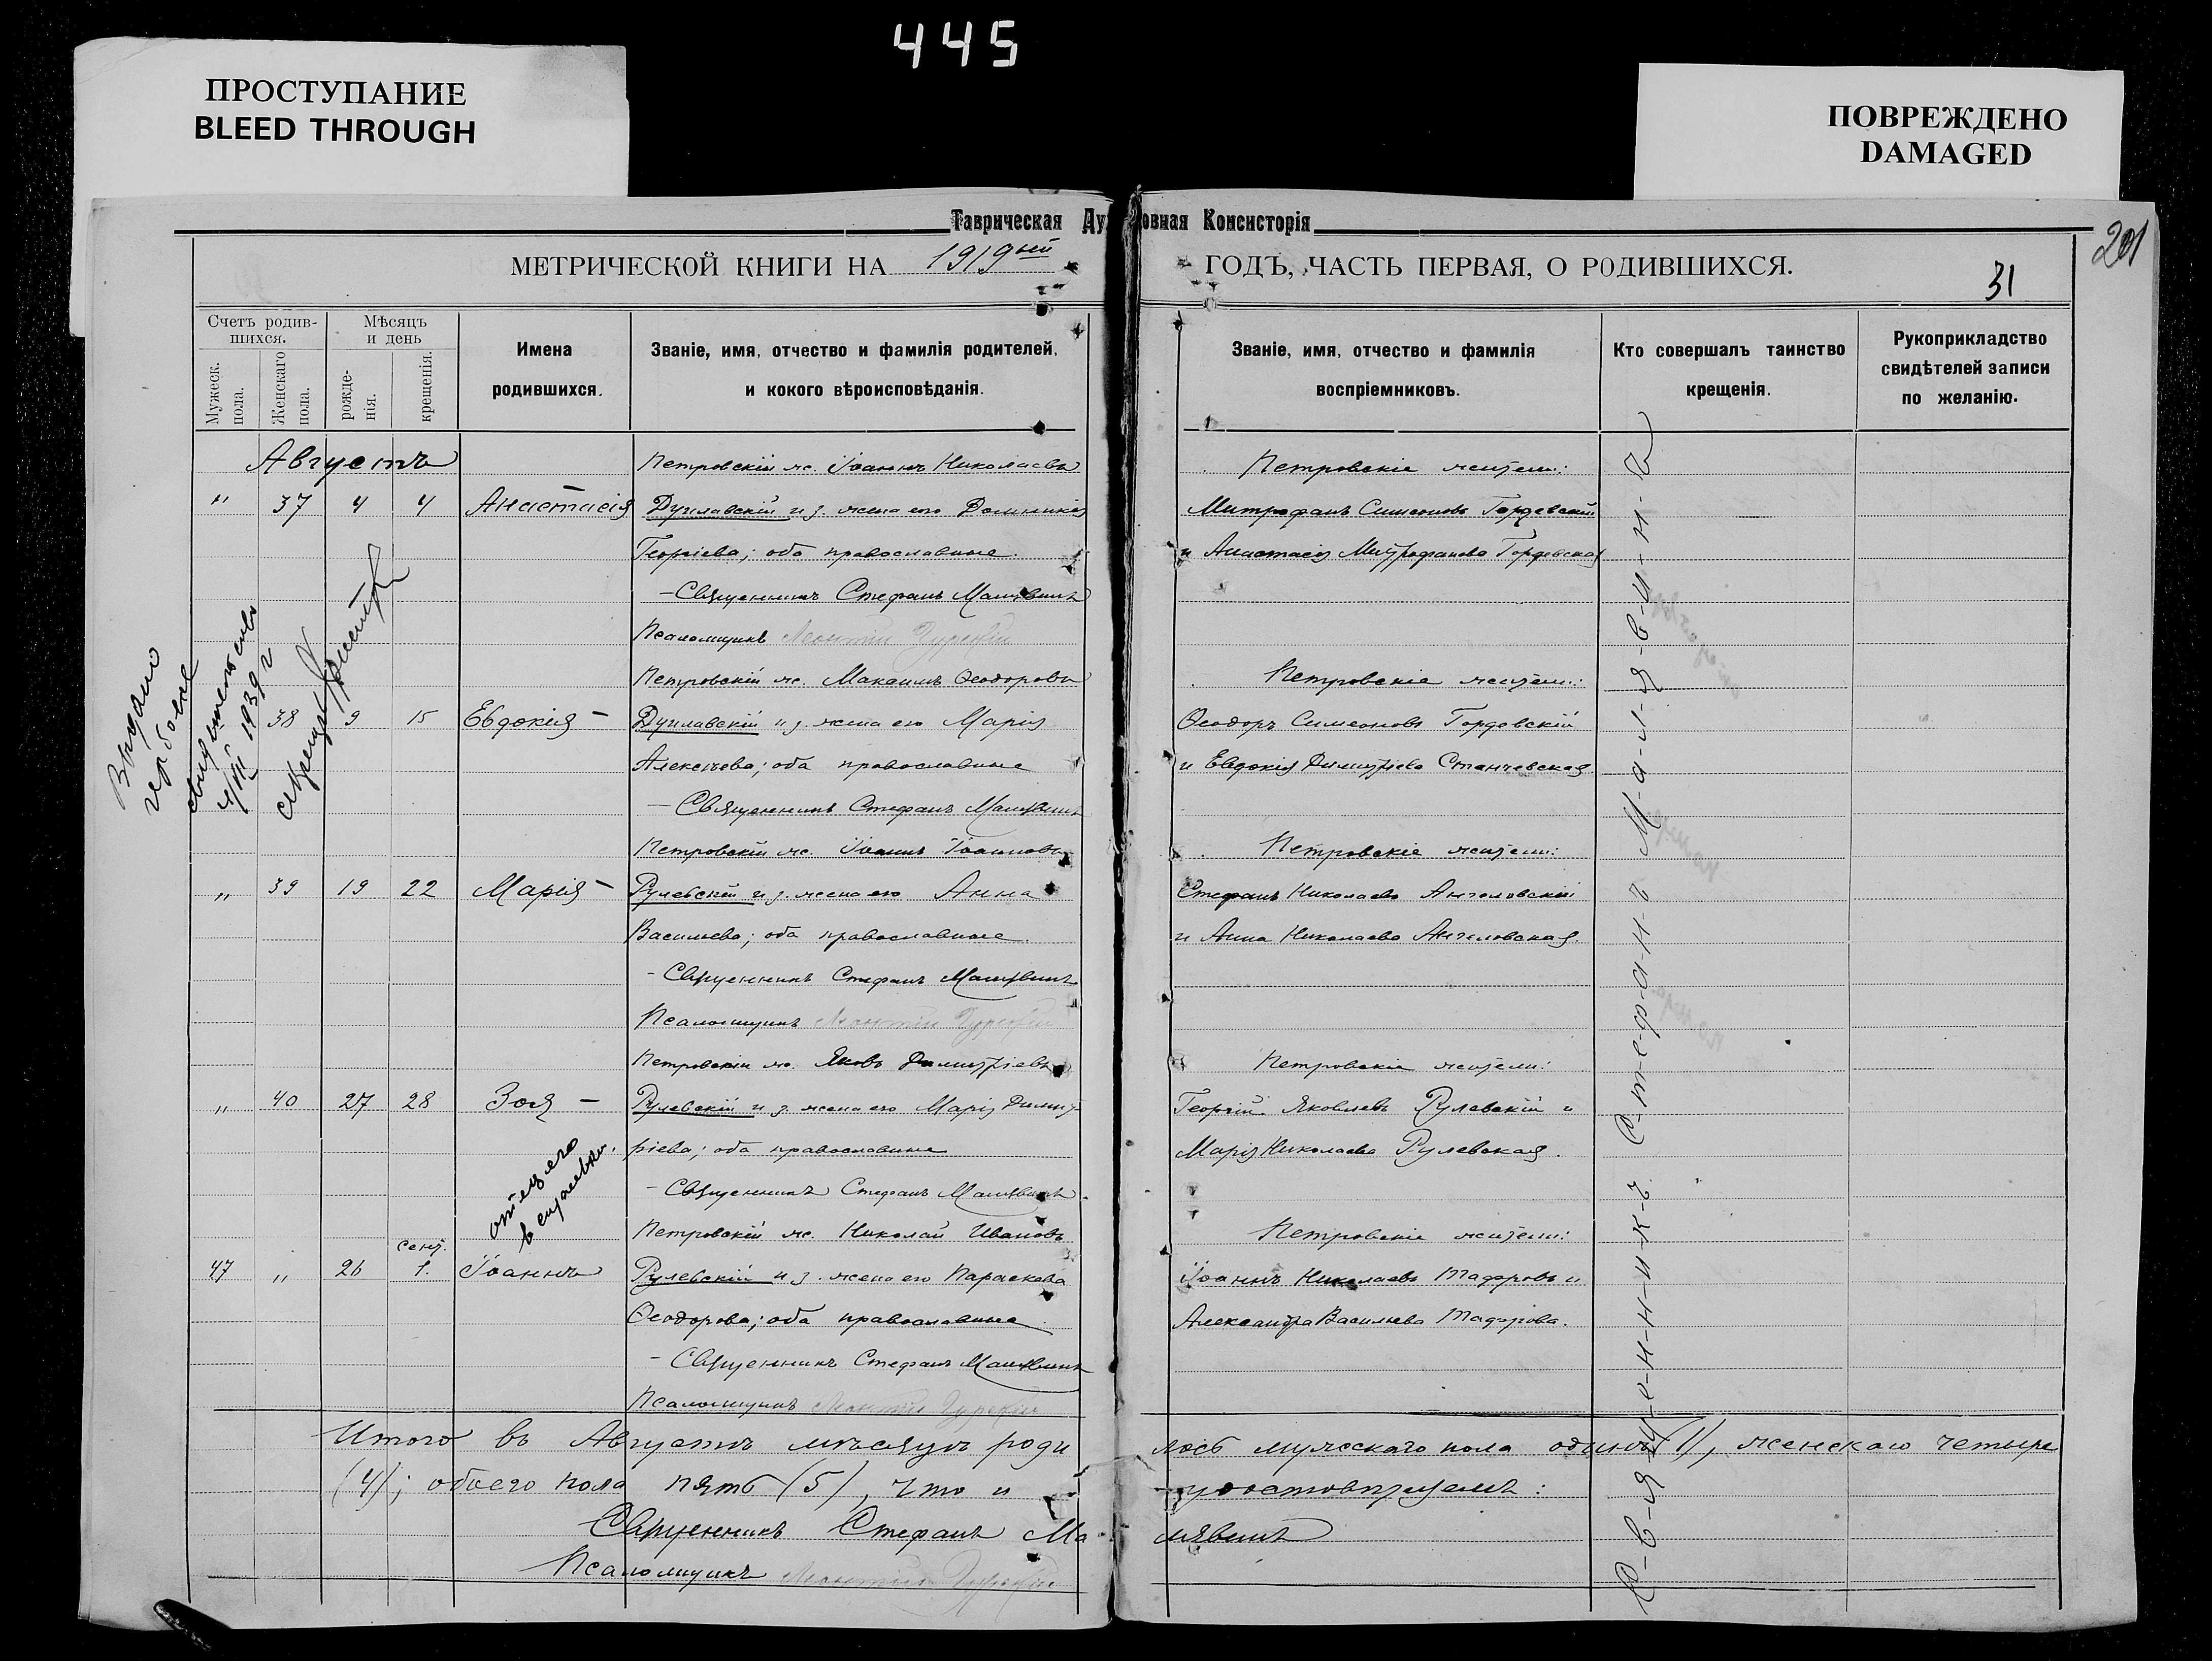 445
ПРОСТУПАНИЕ
BLEED THROUGH
ПОВРЕЖДЕНО
DAMAGED
Таврическая Духовная Консисторія
201
МЕТРИЧЕСКОЙ КНИГИ НА 1919ый ГОДЪ, ЧАСТЬ ПЕРВАЯ, О РОДИВШИХСЯ.
31
Счетъ родив-
шихся.
Мужеск.
пола.
Женскаго
пола.
Мѣсяцъ
и день
рожде-
нія.
крещенія.
Имена
родившихся.
Званіе, имя, отчество и фамилія родителей,
и кокого вѣроисповѣданія.
Званіе, имя, отчество и фамилія
воспріемниковъ.
Кто совершалъ таинство
крещенія.
Рукоприкладство
свидѣтелей записи
по желанію.
Августъ
Петровскій ж. Іоаннъ Николаевъ
Петровскіе жители:
" 37 4 4 Анастасія
Дуплавскій и з. жена его Домникія
Митрофанъ Симеоновъ Гордевскій
Георгіева; оба православные.
и Анастасія Митрофанова Гордевская
- Священникъ Стефанъ Малявинъ
Псаломщикъ Леонтій
Петровскій ж. Максимъ Ѳеодоровъ
Петровскіе жители:
38 9 15 Евдокія -
Дуплавскій и з. жена его Марія
Ѳеодоръ Симеоновъ Гордевскій
Алексѣева; оба православные
и Евдокія Димитріева Станчевская
- Священникъ Стефанъ Малявинъ
Выдано
свидѣтельство
1939 г
Петровскій ж. Іоаннъ Іоанновъ
Петровскіе жители:
" 39 19 22 Марія -
Рулевскій и з. жена его Анна
Стефанъ Николаевъ Ангеловскій
Васильева; оба православные.
и Анна Николаева Ангеловская.
- Священникъ Стефанъ Малявинъ
Псаломщикъ Леонтій
Петровскій ж. Яковъ Димитріевъ
Петровскіе жители:
" 40 27 28 Зоя -
Рулевскій и з. жена его Марія Димит
Георгій Яковлевъ Рулевскій и
ріева; оба православные
Марія Николаева Рулевская.
- Священникъ Стефанъ Малявинъ.
Петровскій ж. Николай Ивановъ
Петровскіе жители:
47 " 26 сент. 1. Іоаннъ
Рулевскій и з. жена его Параскева
Іоаннъ Николаевъ Тадоровъ и
Ѳеодорова; оба православные
Александра Васильева Тадорова.
- Священникъ Стефанъ Малявинъ
Псаломщикъ Леонтій
С-в-я-щ-е-н-н-и-к-ъ С-т-е-ф-а-н-ъ М-а-л-я-в-и-н-ъ
Итого въ Августѣ мѣсяцѣ родилось мужескаго пола одинъ (1), женскаго четыре
(4); обоего пола пять (5), что и удостовѣряемъ:
Священникъ Стефанъ Малявинъ
Псаломщикъ Леонтій